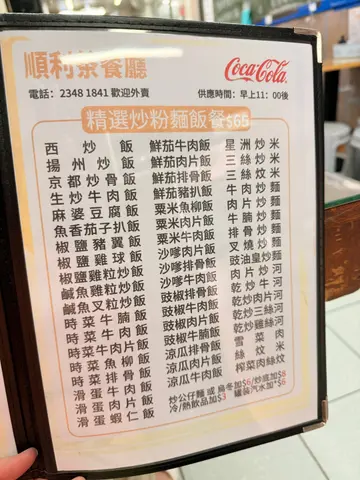 順利茶餐廳
Coca-Cola
電話：2348 1841 歡迎外賣
供應時間：早上11：00後
精選炒粉麵飯餐$65
西炒飯
揚州炒飯
京都炒骨飯
生炒牛肉飯
麻婆豆腐飯
魚香茄子扒飯
椒鹽翼飯
椒鹽雞球飯
椒鹽雞粒炒飯
鹹魚雞粒炒飯
鹹魚叉粒炒飯
時菜牛腩飯
時菜牛肉飯
時菜肉片飯
時菜魚柳飯
時菜排骨飯
滑蛋牛肉飯
滑蛋肉片飯
滑蛋蝦仁飯
鮮茄牛肉飯
鮮茄肉片飯
鮮茄排骨飯
鮮茄豬扒飯
粟米魚柳飯
粟米肉片飯
沙嗲牛肉飯
沙嗲肉片飯
沙嗲排骨飯
豉椒排骨飯
豉椒肉片飯
豉椒牛肉飯
豉椒牛腩飯
涼瓜排骨飯
涼瓜肉片飯
涼瓜牛肉飯
星洲炒米
三絲炒米
三絲炒麵
牛肉炒麵
肉片炒麵
牛腩炒麵
排骨炒麵
叉燒炒麵
豉油皇炒麵
肉片炒河
乾炒牛河
乾炒肉片河
乾炒三絲河
乾炒雞絲河
雪菜肉
絲炆米
榨菜肉絲炆
炒公仔麵 或 烏冬加$6/炒底加$8
冷/熱飲品加$3 罐裝汽水加*$6